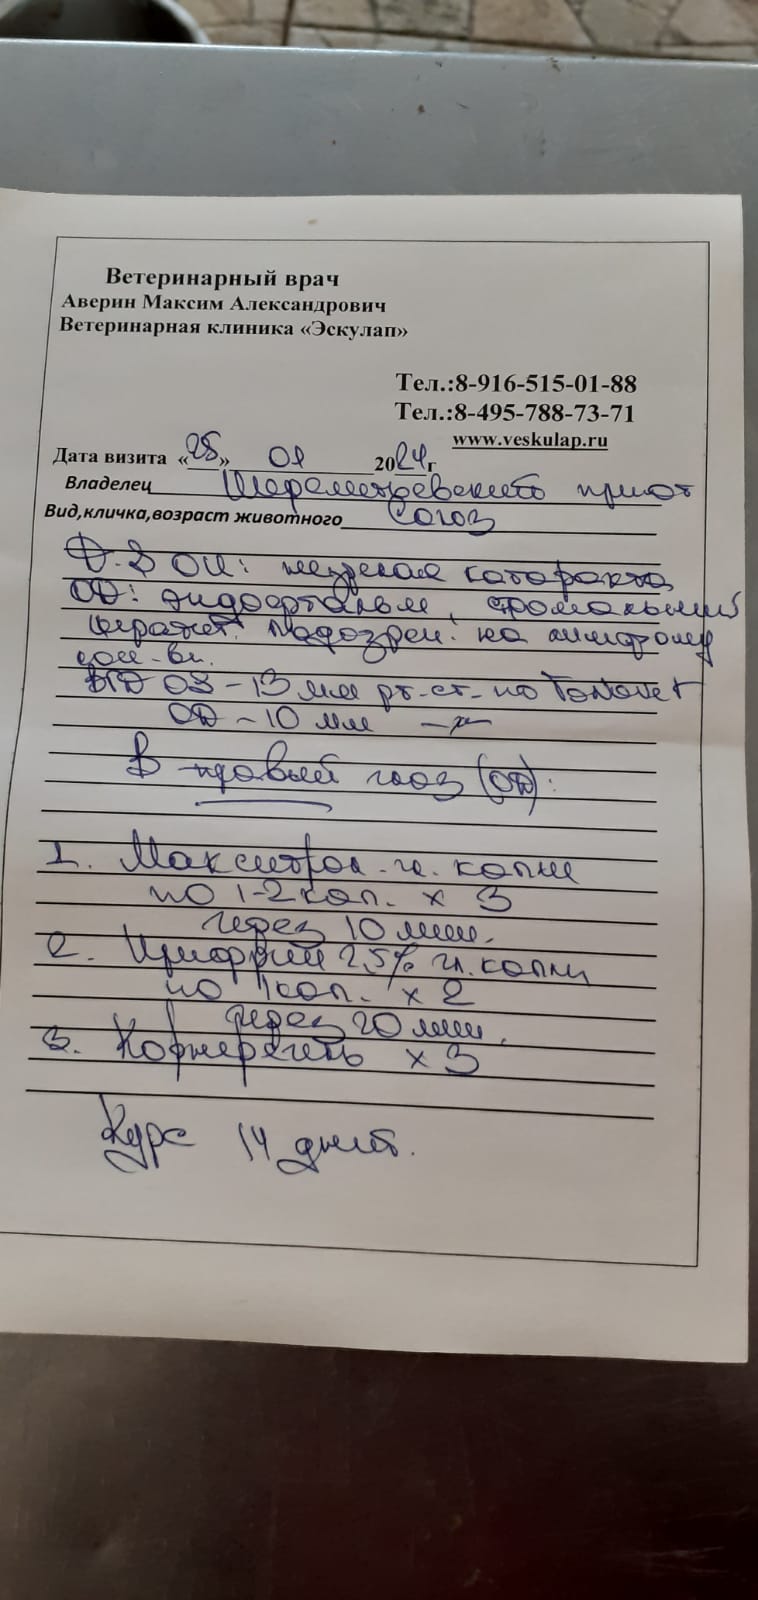 Ветеринарный врач
Аверин Максим Александрович
Ветеринарная клиника «Эскулап»
Тел.:8-916-515-01-88
Тел.:8-495-788-73-71
www.veskulap.ru
Дата визита «25» 01 2024г
Владелец Шереметьевский приют
Вид,кличка,возраст животного Союз
D.S OU: незрелая катаракта
OD: стромальный
кератит. подозрен. на лимфому
ВГД OS - 13 мм рт. ст. по Tonovet
OD - 10 мм -"-
В правый глаз (OD):
1. Макситрол гл. капли
по 1-2 кап. x 3
через 10 мин.
2. Ирифрин 2,5% гл. капли
по 1 кап. x 2
через 20 мин.
3. Корнерегель x 3
Курс 14 дней.